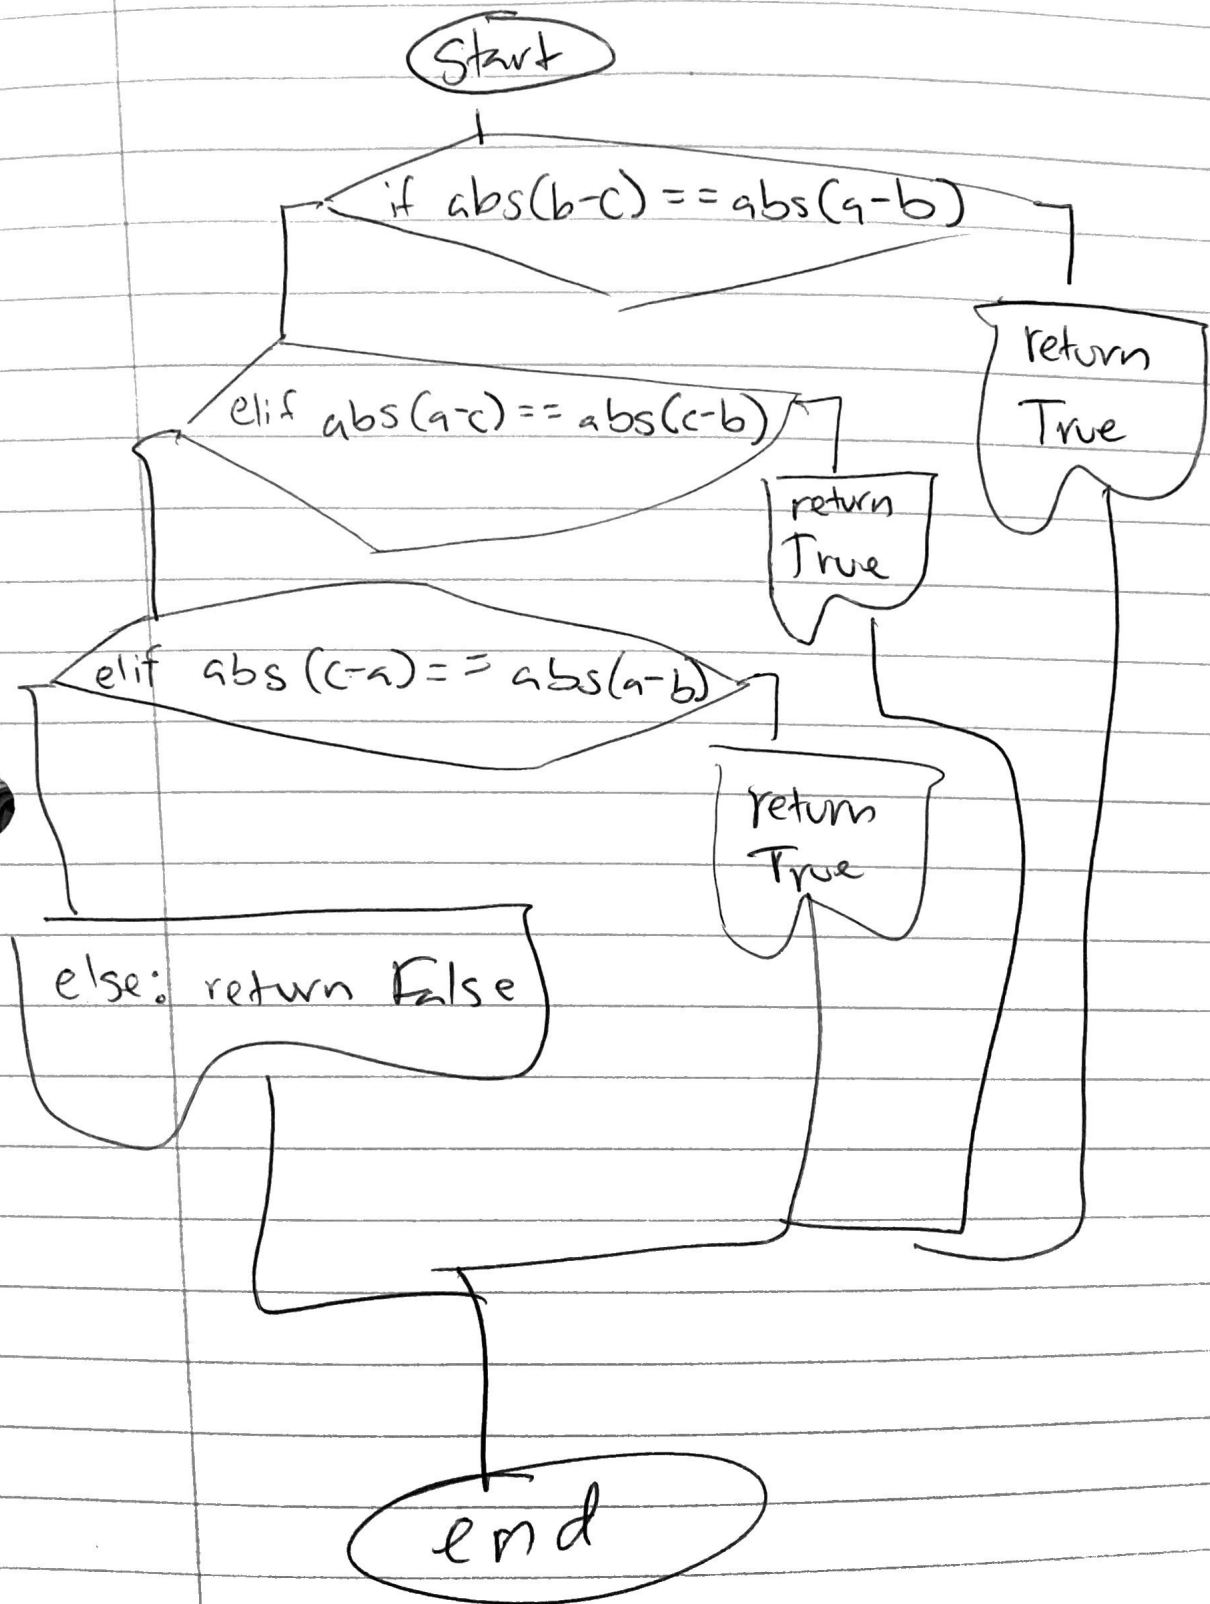 Start
if abs(b-c)==abs(a-b)
return
True
elif abs(a-c)==abs(c-b)
return
True
elif abs(c-a)==abs(a-b)
return
True
else: return False
end